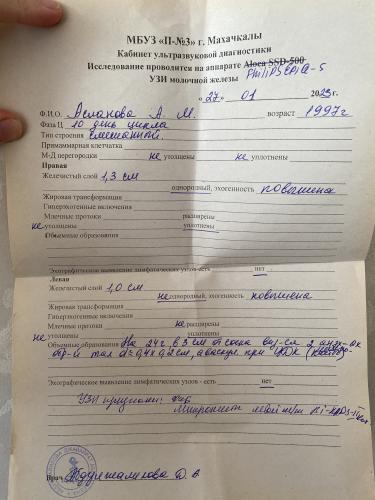 МБУЗ «П-№3» г. Махачкалы
Кабинет ультразвуковой диагностики
Исследование проводится на аппарате Aloca SSD-500
PHILIPS EPIQ-5
УЗИ молочной железы
«27» 01 2023г.
Ф.И.О. Асланова А. М. возраст 1997г
Фаза Ц 10 день цикла
Тип строения смешанный.
Примаммарная клетчатка
М-Д перегородки не утолщены не уплотнены
Правая
Железистый слой 1,3 см
однородный, эхогенность повышена
Жировая трансформация
Гиперэхогенные включения
Млечные протоки расширены
не утолщены уплотнены
Объемные образования
Эхографическое выявление лимфатических узлов - есть нет
Левая
Железистый слой 1,0 см
неоднородный, эхогенность повышена
Жировая трансформация
Гиперэхогенные включения
Млечные протоки не расширены
не утолщены уплотнены
Объемные образования На 2ч в 3 см от соска
0,4х0,2см, аваскул. при ЦДК
Эхографическое выявление лимфатических узлов - есть нет
УЗИ признаки:
левой
Врач Абдулжалилова Д. А.